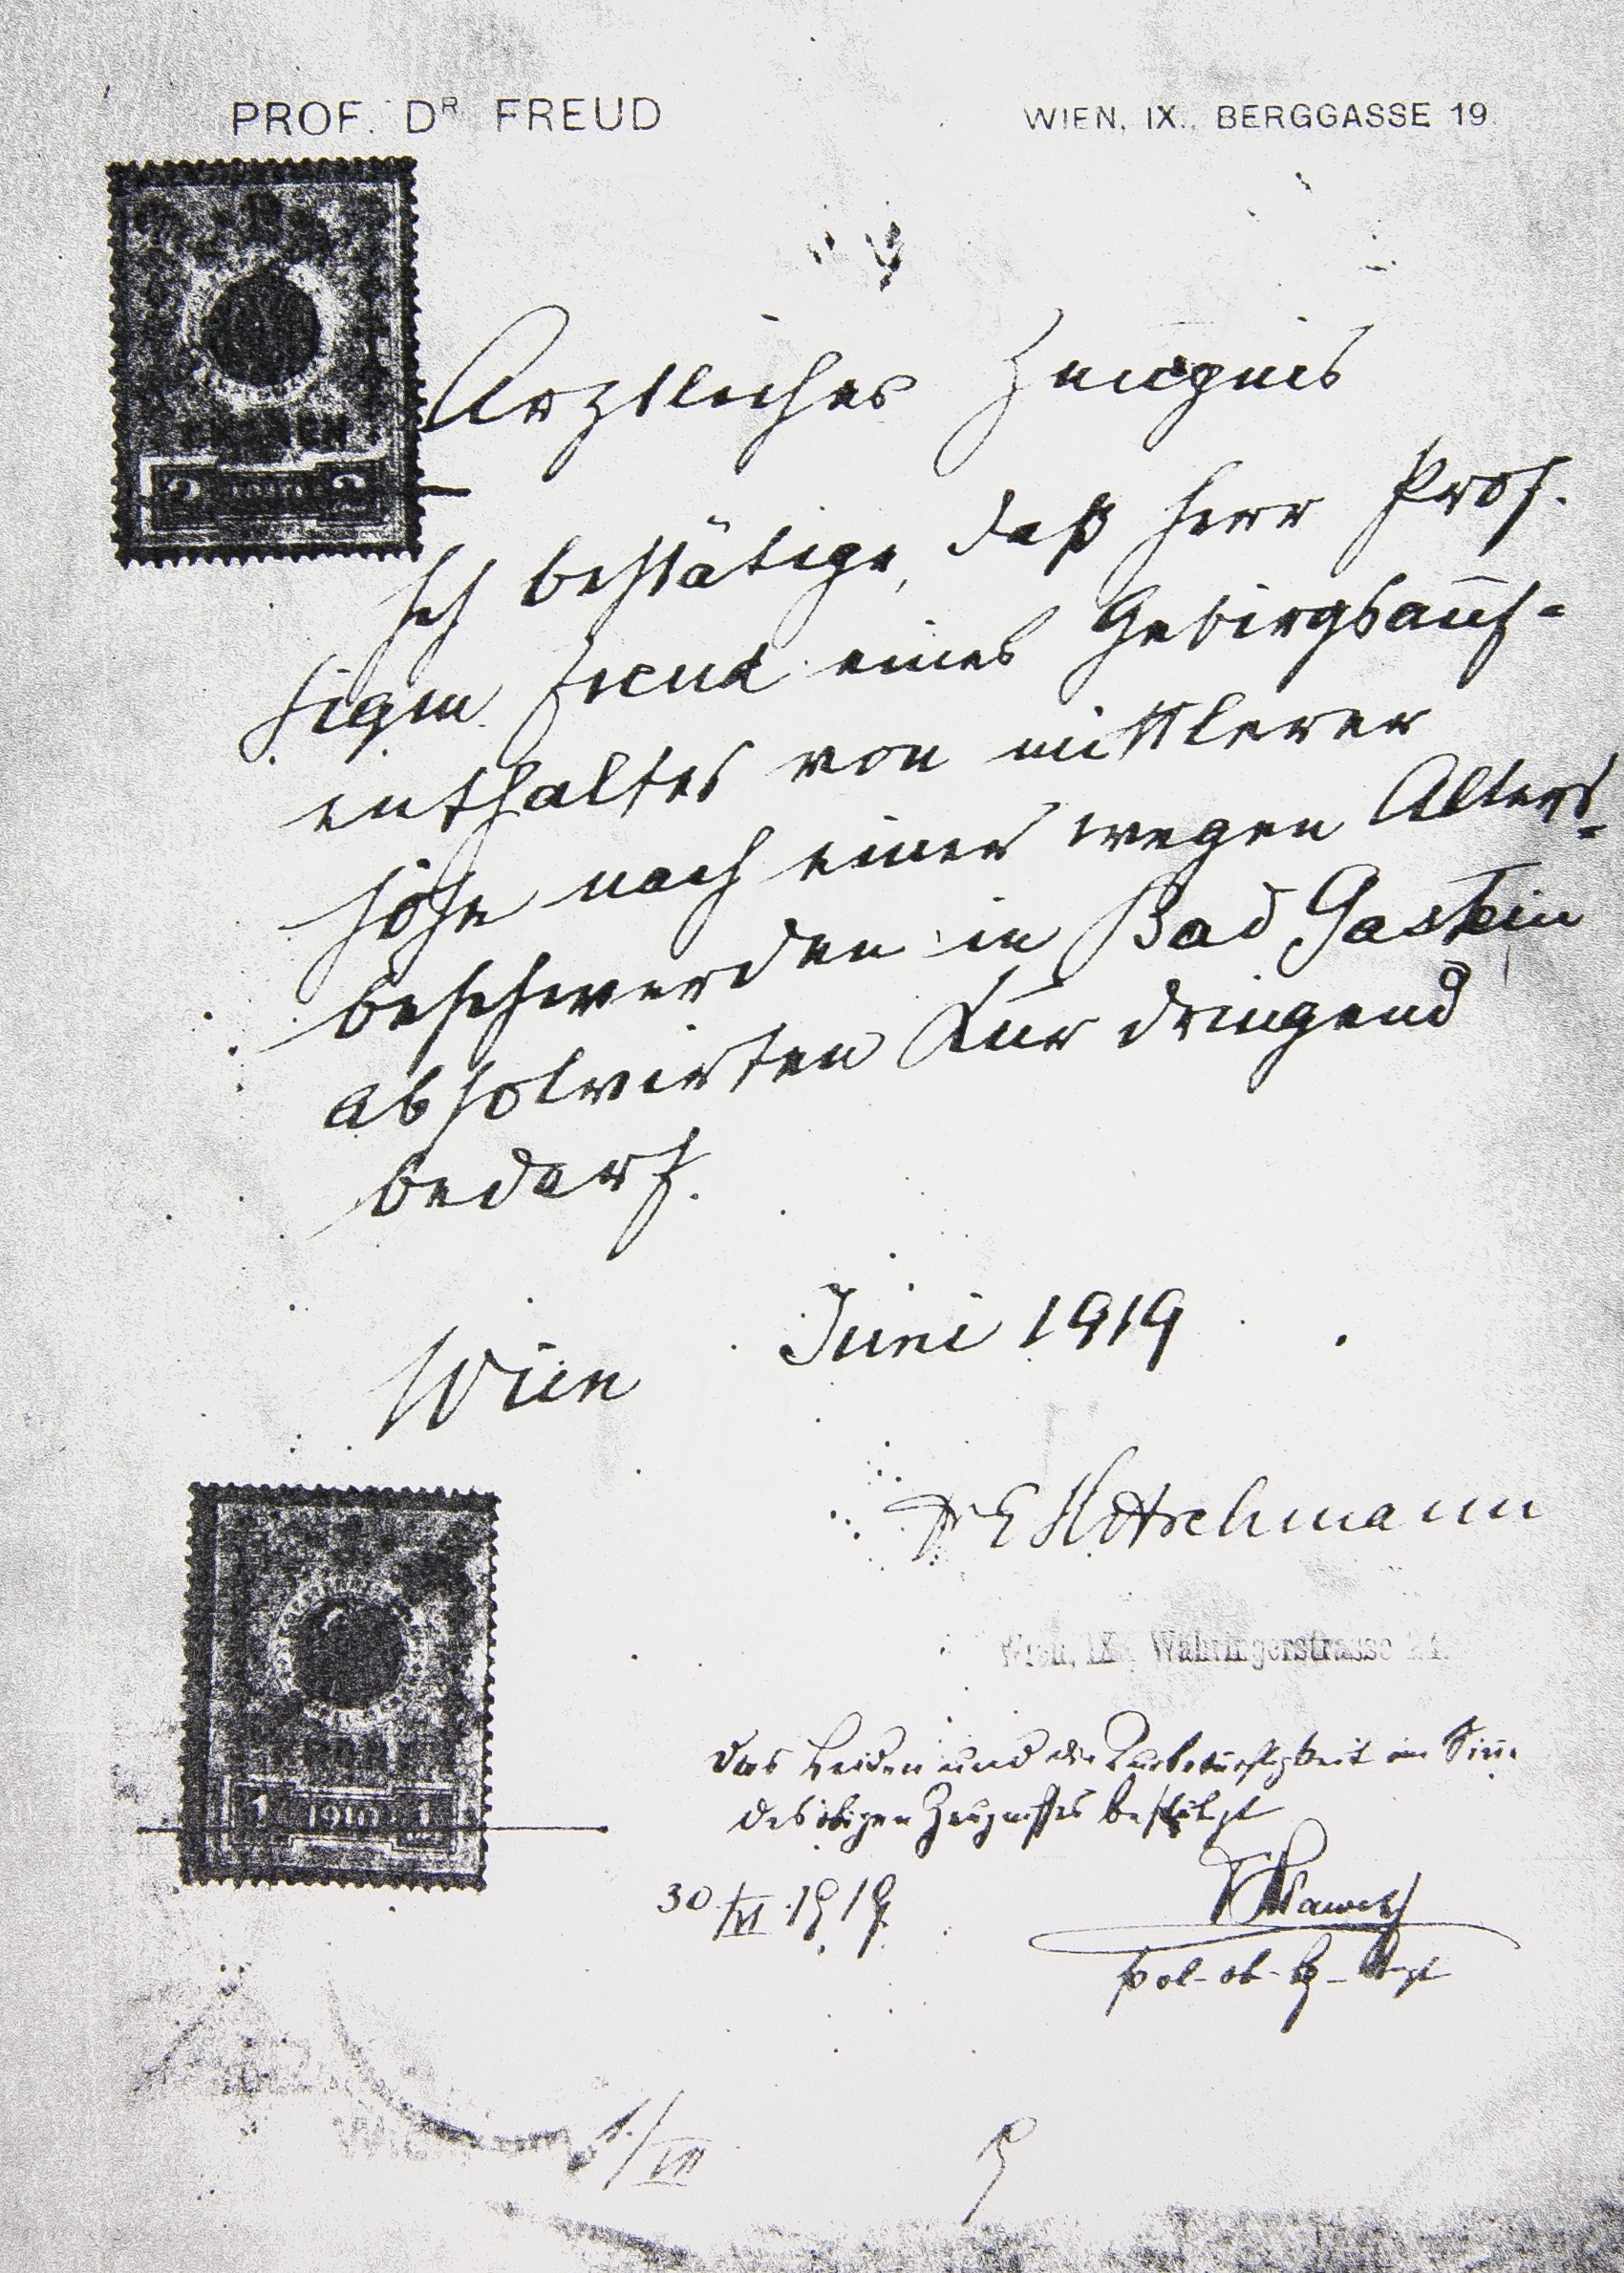 PROF. DR FREUD
WIEN, IX., BERGGASSE 19
2 2
Ärztliches Zeugnis
Ich bestätige, daß Herr Prof.
Sigm. Freud eines Gebirgsauf-
enthaltes von mittlerer
Höhe nach einer wegen Alters-
beschwerden in Bad Gastein
absolvirten Kur dringend
bedarf.
Wien Juni 1919
Dr E Hitschmann
Wien, IX. Währingerstrasse 24.
1 1910 1
Das Leiden und die Kurbedürftigkeit im Sinne
des obigen Zeugnisses bestätigt
30/VI 1919
pol-ob-Bz-Arzt
1/VII